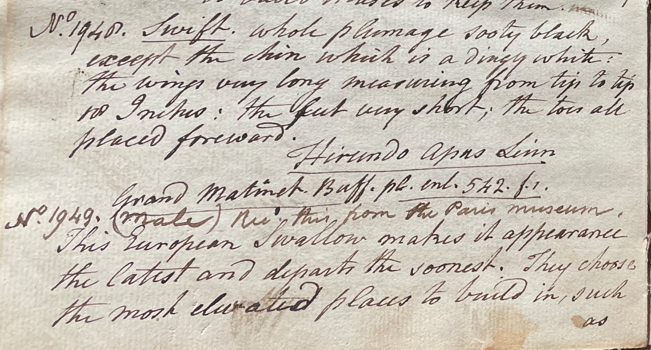 to keep them.
No. 1948. Swift. whole plumage sooty black,
except the chin which is a dingy white:
the wings very long measuring from tip to tip
18 Inches: the feet very short; the toes all
placed forward.
Hirundo Apus Linn
Grand Matinet. Buff. pl. enl. 542. f. 1.
No. 1949. (Male) Recd. this from the Paris museum.
This European Swallow makes it appearance
the latest and departs the soonest. They choose
the most elevated places to build in, such
as